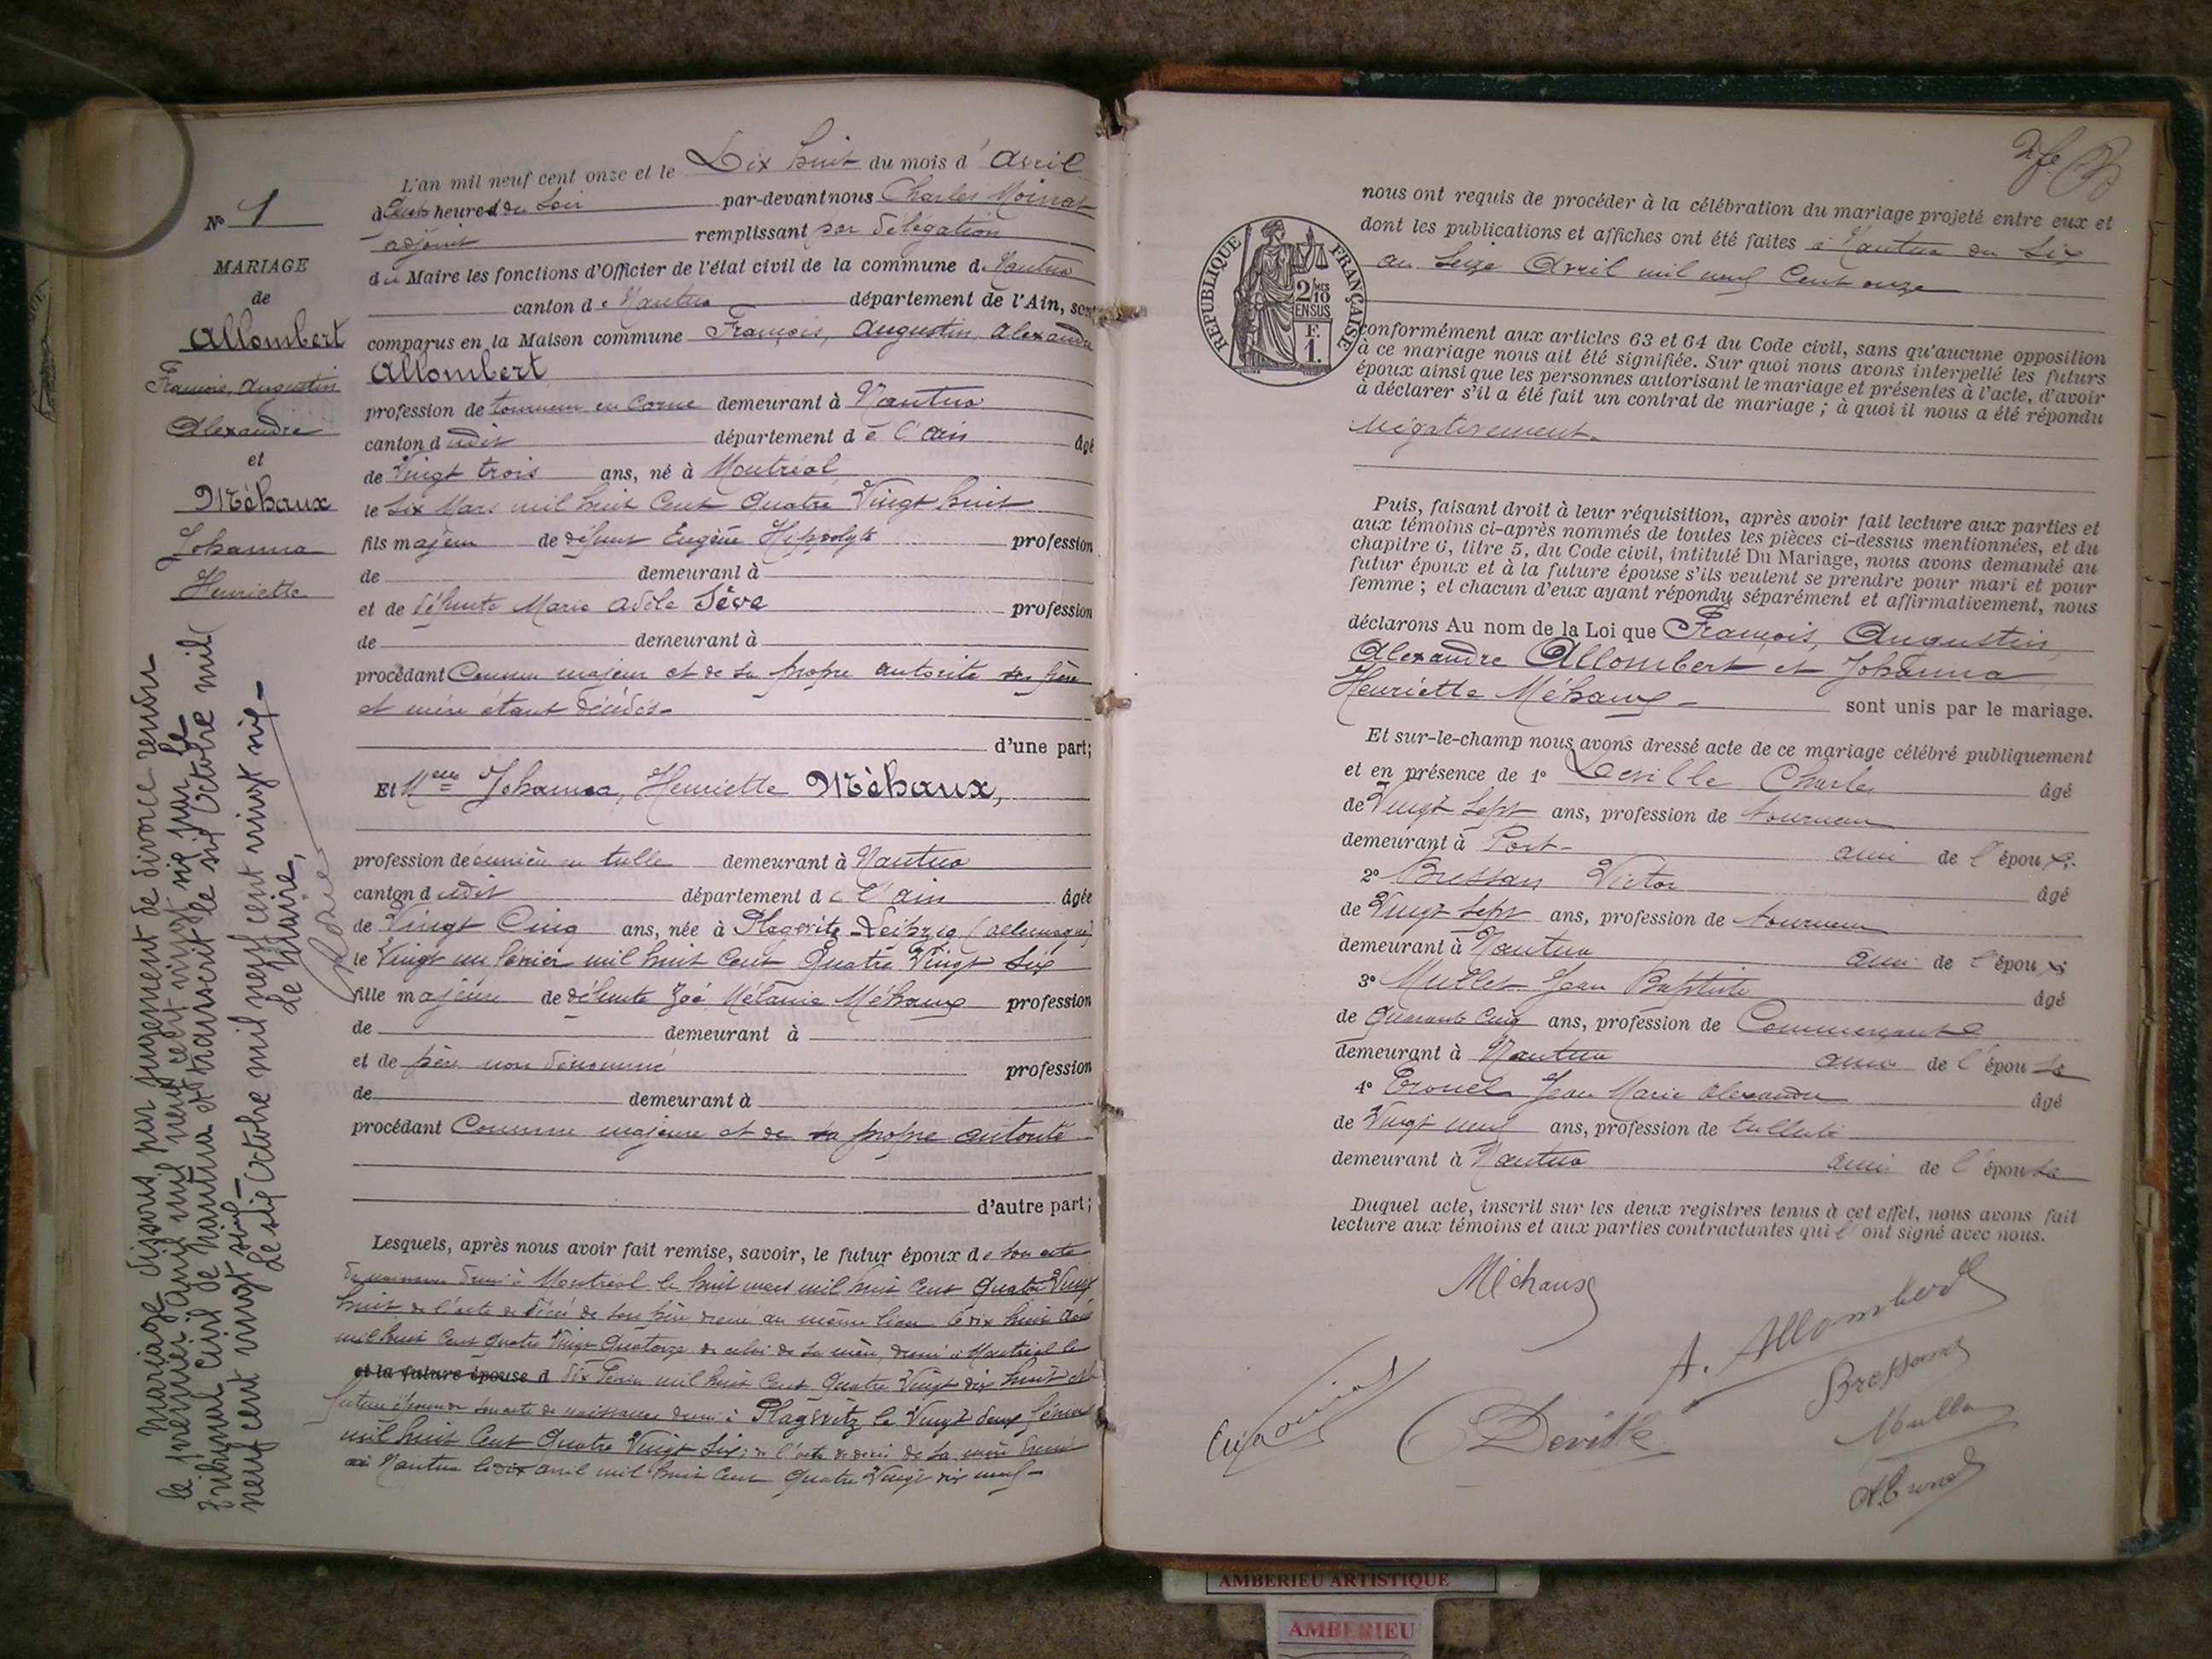 L'an mil neuf cent onze et le Dix huit du mois d'avril
heures du Soir par-devant nous Charles Moinat
adjoint remplissant par délégation
du Maire les fonctions d'Officier de l'état civil de la commune de Nantua
canton de Nantua département de l'Ain, sont
comparus en la Maison commune François, Augustin, Alexandre
Allombert
profession de tourneur en corne demeurant à Nantua
canton dudit département de l'ain âgé
de Vingt trois ans, né à Montréal
le Six Mars mil huit Cent Quatre Vingt huit
fils majeur de défunt Eugène Hippolyte profession
de demeurant à
et de défunte Marie Adèle Sève profession
de demeurant à
procédant Comme majeur et de sa propre autorité ses père
et mère étant décédés
d'une part;
Et Melle Johanna, Henriette Méhaux,
profession de ouvrière en tulle demeurant à Nantua
canton dudit département de l'ain âgée
de Vingt Cinq ans, née à Plagwitz Leipzig (allemagne)
le Vingt un février mil huit Cent Quatre Vingt Six
fille majeure de défunte Zoé Mélanie Méhaux profession
de demeurant à
et de père non dénommé profession
de demeurant à
procédant Comme majeure et de sa propre autorité
d'autre part;
Lesquels, après nous avoir fait remise, savoir, le futur époux de son acte
de naissance dressé à Montréal le huit mars mil huit Cent Quatre Vingt
huit de l'acte de décès de son père, dressé au même lieu le dix huit
mil huit Cent Quatre Vingt Quatorze de celui de sa mère, dressé à Montréal le
et la future épouse d dix Février mil huit Cent Quatre Vingt dix huit et la
future épouse de son acte de naissance dressé à Plagwitz le Vingt deux février
mil huit Cent Quatre Vingt Six; de l'acte de décès de sa mère dressé
à Nantua le dix avril mil huit Cent Quatre Vingt dix neuf
No 1
MARIAGE
de
Allombert
François, Augustin
Alexandre
et
Méhaux
Johanna
Henriette
Mariage dissous par jugement de divorce rendu
le premier avril mil neuf cent vingt six par le
Tribunal Civil de Nantua et transcrit le six Octobre mil
neuf cent vingt six
Le six Octobre mil neuf cent vingt six
Le Maire,
nous ont requis de procéder à la célébration du mariage projeté entre eux et
dont les publications et affiches ont été faites à Nantua du Six
au Seize Avril mil neuf Cent onze
RÉPUBLIQUE FRANÇAISE
2/10
MES
EN SUS
F.
1.
conformément aux articles 63 et 64 du Code civil, sans qu'aucune opposition
à ce mariage nous ait été signifiée. Sur quoi nous avons interpellé les futurs
époux ainsi que les personnes autorisant le mariage et présentes à l'acte, d'avoir
à déclarer s'il a été fait un contrat de mariage ; à quoi il nous a été répondu
Négativement.
Puis, faisant droit à leur réquisition, après avoir fait lecture aux parties et
aux témoins ci-après nommés de toutes les pièces ci-dessus mentionnées, et du
chapitre 6, titre 5, du Code civil, intitulé Du Mariage, nous avons demandé au
futur époux et à la future épouse s'ils veulent se prendre pour mari et pour
femme ; et chacun d'eux ayant répondu séparément et affirmativement, nous
déclarons Au nom de la Loi que François, Augustin,
Alexandre Allombert et Johanna
Henriette Méhaux sont unis par le mariage.
Et sur-le-champ nous avons dressé acte de ce mariage célébré publiquement
et en présence de 1° Deville Charles âgé
de Vingt Sept ans, profession de tourneur
demeurant à Port ami de l'époux.
2° Bressan Victor âgé
de Vingt Sept ans, profession de tourneur
demeurant à Nantua ami de l'époux
3° Mullet Jean Baptiste âgé
de Quarante Cinq ans, profession de Commerçant
demeurant à Nantua ami de l'épouse
4° Jean Marie Alexandre âgé
de Vingt neuf ans, profession de tulliste
demeurant à Nantua ami de l'épouse
Duquel acte, inscrit sur les deux registres tenus à cet effet, nous avons fait
lecture aux témoins et aux parties contractantes qui l'ont signé avec nous.
Méhaux
A. Allombert
Bressan
Deville
Mullet
AMBERIEU ARTISTIQUE
AMBERIEU